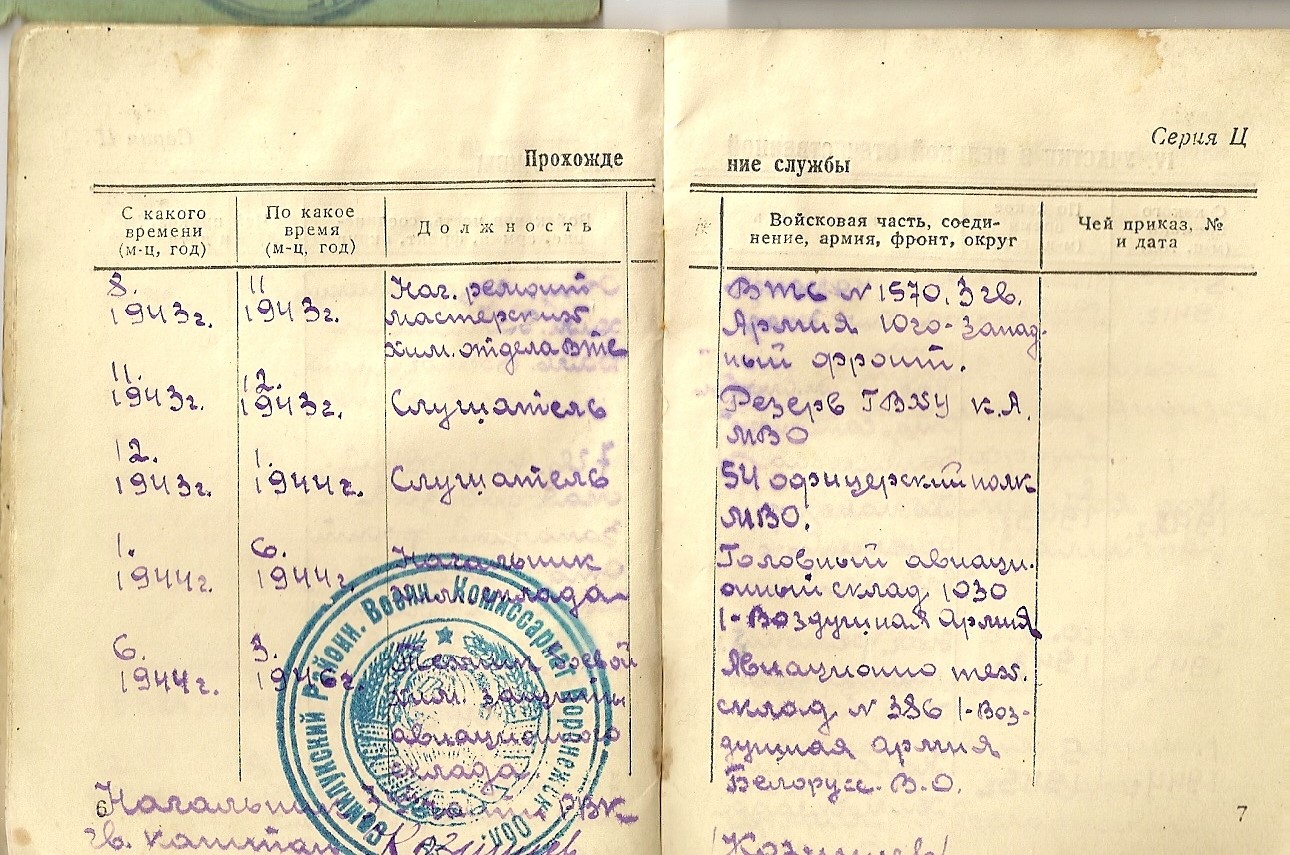 Серия Ц
Прохожде
ние службы
С какого
времени
(м-ц, год)
По какое
время
(м-ц, год)
Должность
Войсковая часть, соеди-
нение, армия, фронт, округ
Чей приказ, №
и дата
8.
1943г.
11
1943г.
Нач. ремонт
мастерских
хим. отдела ВТС
ВТС N 1570, 3 гв.
Армия Юго-Запад
ный фронт.
11.
1943г.
12.
1943г.
Слушатель
Резерв ГВХУ К.А.
МВО
12.
1943г.
1.
1944г.
Слушатель
54 офицерский полк
МВО.
1.
1944г.
6.
1944г.
Начальник
хим. склада
Головный авиаци-
онный склад 1030
1-Воздушная Армия
6.
1944г.
3.
1946г.
Техник боевой
хим. защиты
авиационного
склада
Авиационно тех.
склад N 386 1-Воз-
душная армия
Белорусс. В.О.
Семилукский Районн. Военн. Комиссариат Воронежской обл.
Начальник РВК
гв. капитан
6
7